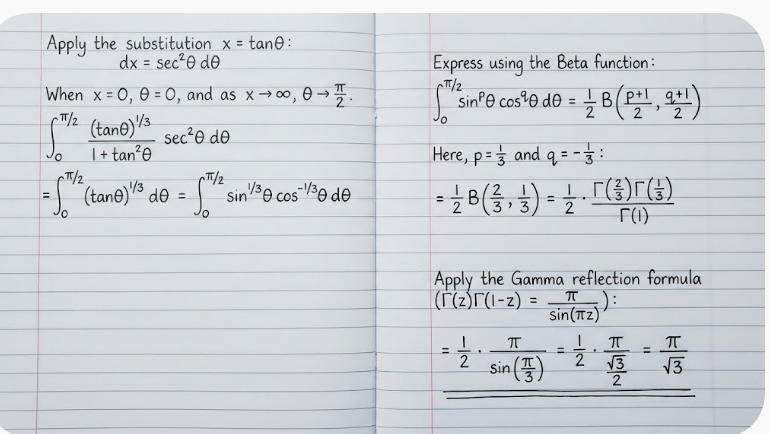 Apply the substitution x = tanθ:
dx = sec²θ dθ
When x = 0, θ = 0, and as x → ∞, θ → π/2.
∫₀^(π/2) (tanθ)^(1/3) / (1 + tan²θ) sec²θ dθ
= ∫₀^(π/2) (tanθ)^(1/3) dθ = ∫₀^(π/2) sin^(1/3)θ cos^(-1/3)θ dθ
Express using the Beta function:
∫₀^(π/2) sin^pθ cos^qθ dθ = 1/2 B((p+1)/2, (q+1)/2)
Here, p = 1/3 and q = -1/3:
= 1/2 B(2/3, 1/3) = 1/2 · Γ(2/3)Γ(1/3) / Γ(1)
Apply the Gamma reflection formula
(Γ(z)Γ(1-z) = π / sin(πz)):
= 1/2 · π / sin(π/3) = 1/2 · π / (√3/2) = π/√3